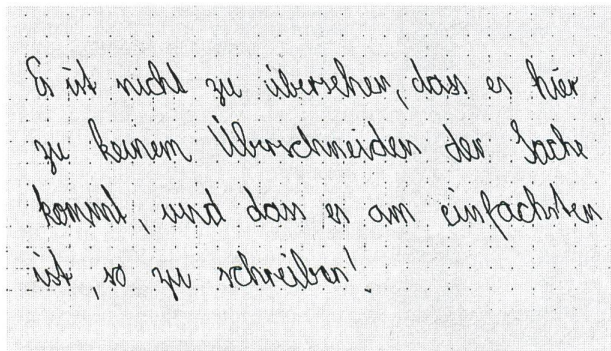 Es ist nicht zu übersehen, dass es hier
zu keinem Überschneiden der Sache
kommt, und dass es am einfachsten
ist, so zu schreiben!